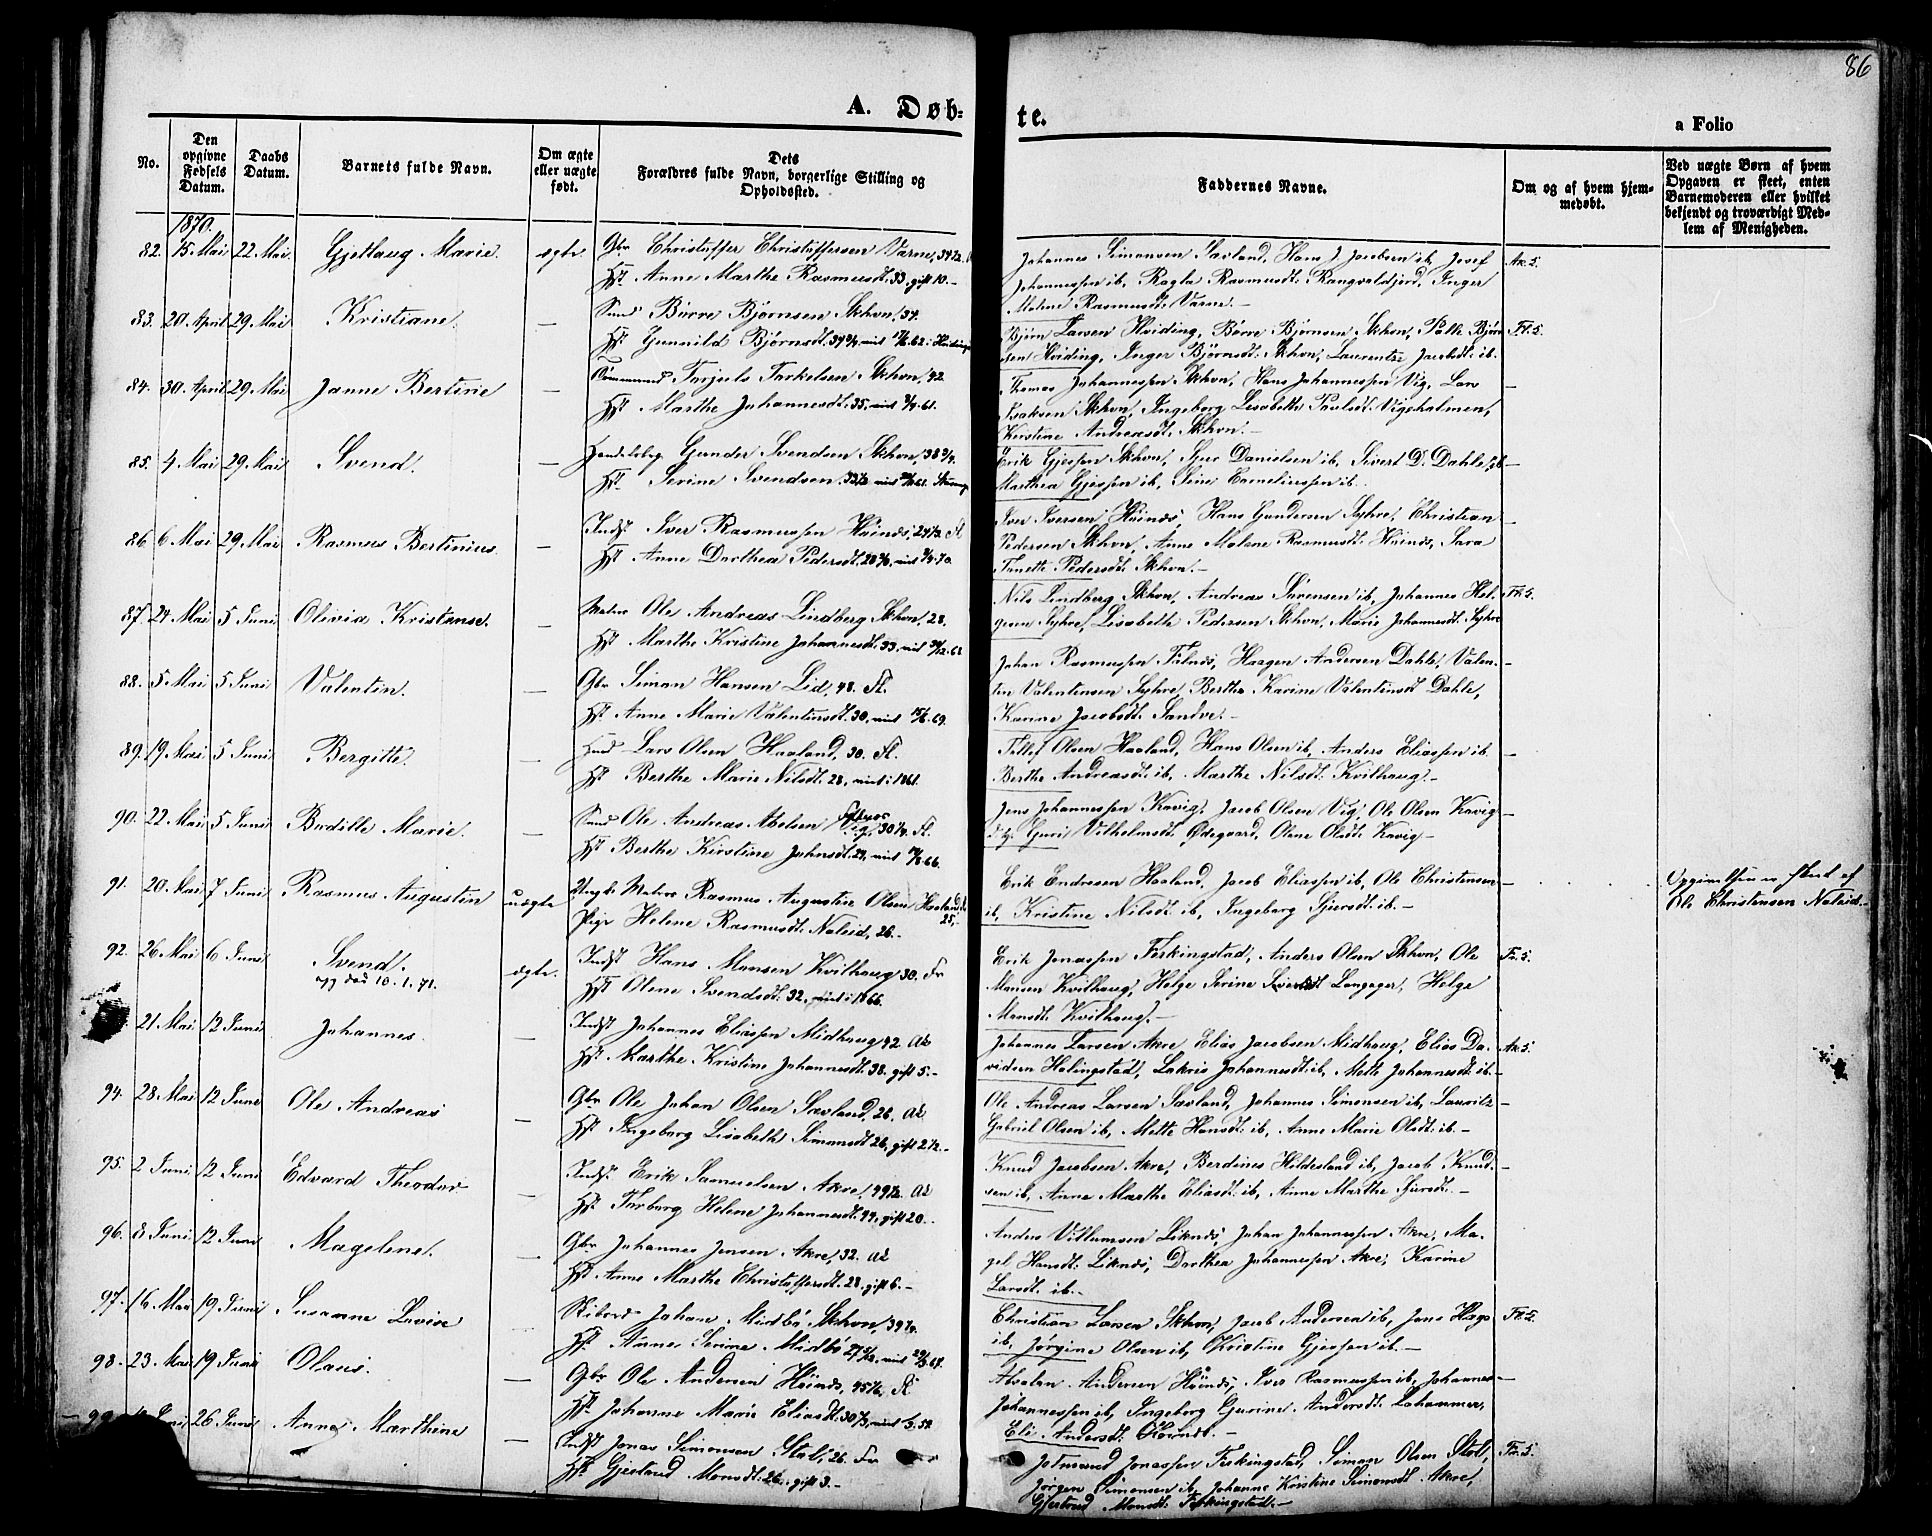 86
A. Døb-
te.
a Folio
No.
Den opgivne Fødsels Datum.
Daabs Datum.
Barnets fulde Navn.
Om ægte eller uægte født.
Dets Forældres fulde Navn, borgerlige Stilling og Opholdssted.
Faddernes Navne.
Om og af hvem hjemmedøbt.
Ved uægte Børn af hvem Opgaven er skeet, enten Barnemoderen eller hvilket bekjendt og troværdigt Medlem af Menigheden.
1870.
82. 15 Mai 22 Mai. Gjetlaug Marie. ægte. Gbr Christoffer Christoffersen Varne, 34½.
Hst. Anne Marthe Rasmusdt. 33, gift 10.-
Johannes Simonsen Sævland, Hans J. Jacobsen ib, Josef
Johannessen ib, Ragla Rasmusdt. Rangvaldjord, Inger
Malene Rasmusdt. Varne.-
Ak. S.
83. 20 April 29 Mai Kristiane. — Smed Børre Bjørnsen Skhvn, 34.
Hst Gunnild Bjørnsdt.
Bjørn Larsen Hviding, Børre Bjørnsen Skhvn, Palle Bjørn
sen Hviding, Inger Bjørnsdt. Skhvn, Laurentze Jacobdt. ib.
Fl. S.
84. 30 April 29 Mai Janne Bertine — Tarjuls Tarkelsen Skhvn, 42
Hst Marthe Johannesdt. 35,
Thomas Johannessen Skhvn, Hans Johannessen Vig, Lars
Isaksen Skhvn, Ingeborg Lisabeth Paulsdt. Vigeholmen,
Kirstine Andreasdt. Skhvn.-
85. 4 Mai 29 Mai Svend. — Gunder Svendsen Skhvn, 38¾.
Hst. Serine Svendsen
Erik Gjessen Skhvn, Sjur Danielsen ib, Sivert D. Dahle, ib
Marthea Gjessen ib, Sine Corneliussen ib.
86. 6 Mai 29 Mai Rasmus Bertinius. — Indst Iver Rasmussen Høinæs, 24½ Fl
Hst. Anne Dorthea Pedersdt.
Iver Iversen Høinæs, Hans Gundersen Syhre, Christian
Pedersen Skhvn, Anne Malene Rasmusdt. Høinæs, Sara
Tanette Pedersdt. Skhvn.-
87. 24 Mai 5 Juni Olivia Kristense. — Matros Ole Andreas Lindberg Skhvn, 28.
Hst Marthe Kristine Johannesdt. 33,
Nils Lindberg Skhvn, Andreas Sørensen ib, Johannes Hel-
gesen Syhre, Lisabeth Pedersen Skhvn, Marie Johannesdt. Syhre
Fl. S.
88. 5 Mai 5 Juni Valentin. — Gbr Simon Hansen Lid, 48. Fl.
Hst. Anne Marie Valentinsdt. 30,
Johan Rasmussen Falnæs, Haagen Andersen Dahle, Valen-
tin Valentinsen Syhre, Berthe Karine Valentinsdt. Dahle,
Karine Jacobsdt. Sandve.-
89. 19 Mai 5 Juni Bergitte. — Lars Olsen Haaland, 30. Fl.
Hst Berthe Marie Nilsdt. 28, 1861.
Tollef Olsen Haaland, Hans Olsen ib, Anders Eliassen ib.
Berthe Andreasdt. ib, Marthe Nilsdt. Kvilhaug.-
90. 22 Mai 5 Juni Bodille Marie. — Smed Ole Andreas Abelsen Vig, 30¼. Fl.
Hst Berthe Kirstine Johnsdt.
Jens Johannessen Kavig, Jacob Olsen Vig, Ole Olsen Kavig
Guri Vilhelmsdt. Ødegaard, Olene Olsdt. Kavig-
91. 20 Mai 7 Juni Rasmus Augustin uægte Ungk. Matros Rasmus Augustin Olsen Haaland 25,
Pige Helene Rasmusdt. Naleid, 26.-
Erik Endresen Haaland, Jacob Eliassen ib, Ole Christensen
ib, Kristine Nilsdt. ib, Ingeborg Sjursdt. ib.-
Opgivelsen er skeet af
Ole Christensen Naleid.-
92. 26 Mai 6 Juni Svend.
død 10.1.71.
ægte. Indst Hans Monsen Kvilhaug 30. Fr
Hst Olene Svendsdt. 32, viet i 1866.
Erik Jonassen Ferkingstad, Anders Olsen Skhvn, Ole
Monsen Kvilhaug, Helge Serine Sivertsdt Langager, Helge
Monsdt. Kvilhaug.-
Fr. S.
21 Mai 12 Juni Johannes. — Indst Johannes Eliassen Midhaug 42. Ak
Hst. Marthe Kristine Johannesdt. 38. gift 5.-
Johannes Larsen Akre, Elias Jacobsen Midhaug, Elias Da-
vidsen Helingstad, Lakris Johannesdt. ib, Mette Johannesdt. ib.
Ak. S.
94. 28 Mai 12 Juni Ole Andreas — Gbr Ole Johan Olsen Sævland, 26. Ak
Hst Ingeborg Lisabeth Simonsdt 26, gift 2½.-
Ole Andreas Larsen Sævland, Johannes Simonsen ib, Lauritz
Gabriel Olsen ib, Mette Hansdt. ib, Anne Marie Olsdt. ib.-
95. 2 Juni 12 Juni Edvard Theodor — Indst. Erik Samuelsen Akre, 49½. Ak
Hst. Torborg Helene Johannesdt. 44, gift 20.
Knud Jacobsen Akre, Berdines Hildesland ib, Jacob Knud-
sen ib, Anne Marthe Eliasdt. ib, Anne Marthe Sjursdt.-
96. 8 Juni 12 Juni Magelene. — Gbr Johannes Jensen Akre, 32. Ak
Hst Anne Marthe Christoffersdt. 28, gift 6.-
Anders Villumsen Liknæs, Johan Johannessen Akre, Ma-
gel Hansdt. Liknæs, Dorthea Johannessen Akre, Karine
Larsdt. ib.-
97. 16 Mai 19 Juni Susanne Lovise — Johan Midbø Skhvn, 39¼.
Hst. Anne Serine Midbø
Christian Larsen Skhvn, Jacob Andersen ib, Jens Hage
ib, Jørgine Olsen ib, Kristine Gjessen ib.-
Fl. S.
98. 23 Mai 19 Juni Olaus. — Gbr Ole Andersen Høinæs, Fl
Hst. Johanne Marie Eliasdt.
Absalon Andersen Høinæs, Iver Rasmussen ib, Johannes
Johannessen ib, Ingeborg Gurine Andersdt. Lahammer,
Eli Andersdt. Høinæs.-
99 Juni 26 Juni Anne Marthine — Indst Jonas Simonsen Stol, 26. Fr
Hst. Gjertrud Monsdt. 26, gift 3.-
Jonassen Ferkingstad, Simon Olsen Stol,
Jørgen Simonsen ib, Johanne Kristine Simonsdt. Akre,
Gjertrud Monsdt. Ferkingstad.-
Fr. S.